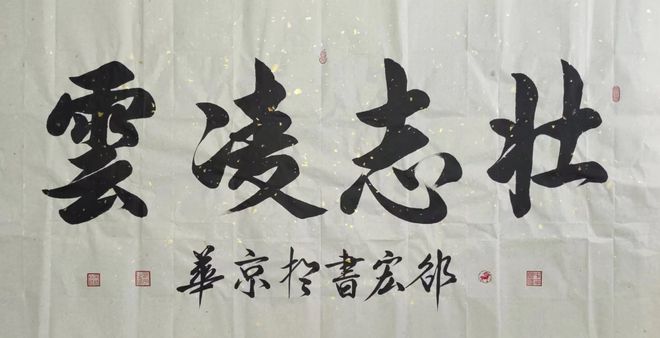 壮志凌雲
邰宏書於京華